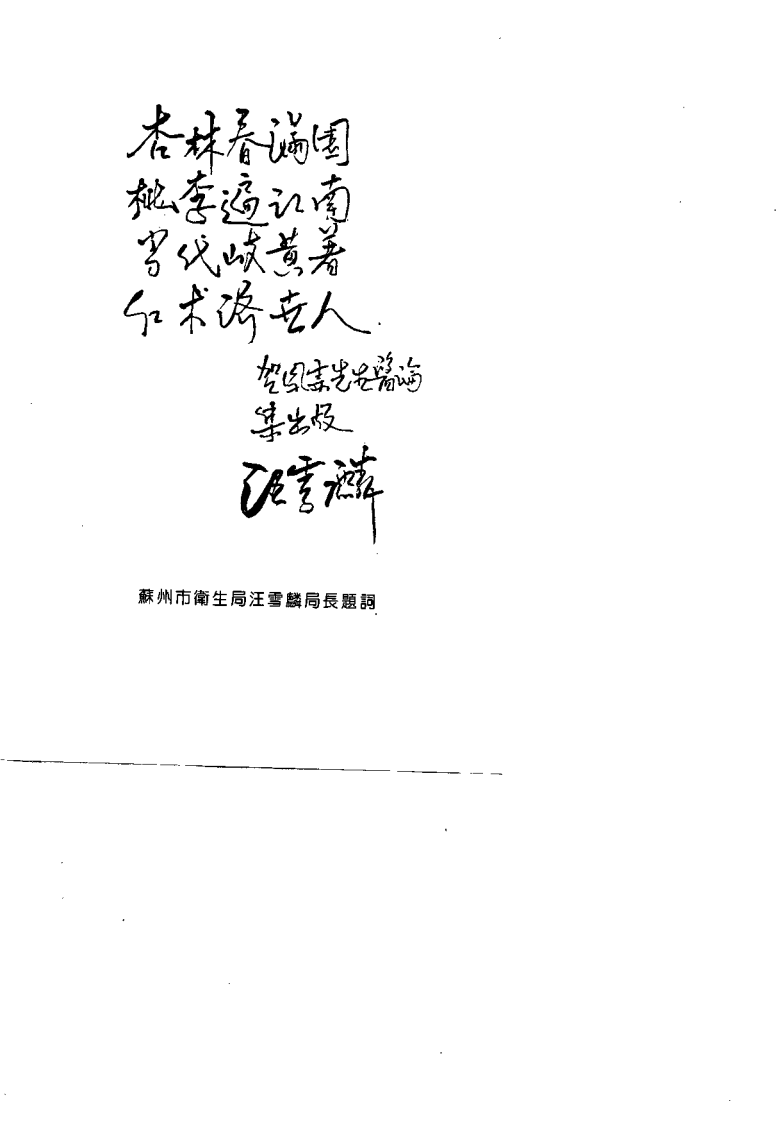 杏林春满園
桃李遍江南
当代岐黄著
仁术济世人.
贺先生醫論
集出版
汪雪麟
蘇州市衛生局汪雪麟局長題詞